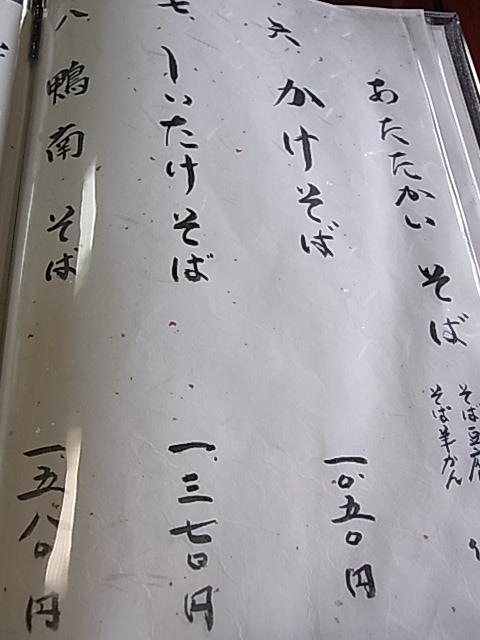 あたたかい そば
そば豆腐
そば羊かん
六 かけそば 一、〇五〇円
七 しいたけそば 一、三七〇円
八 鴨南そば 一、五八〇円